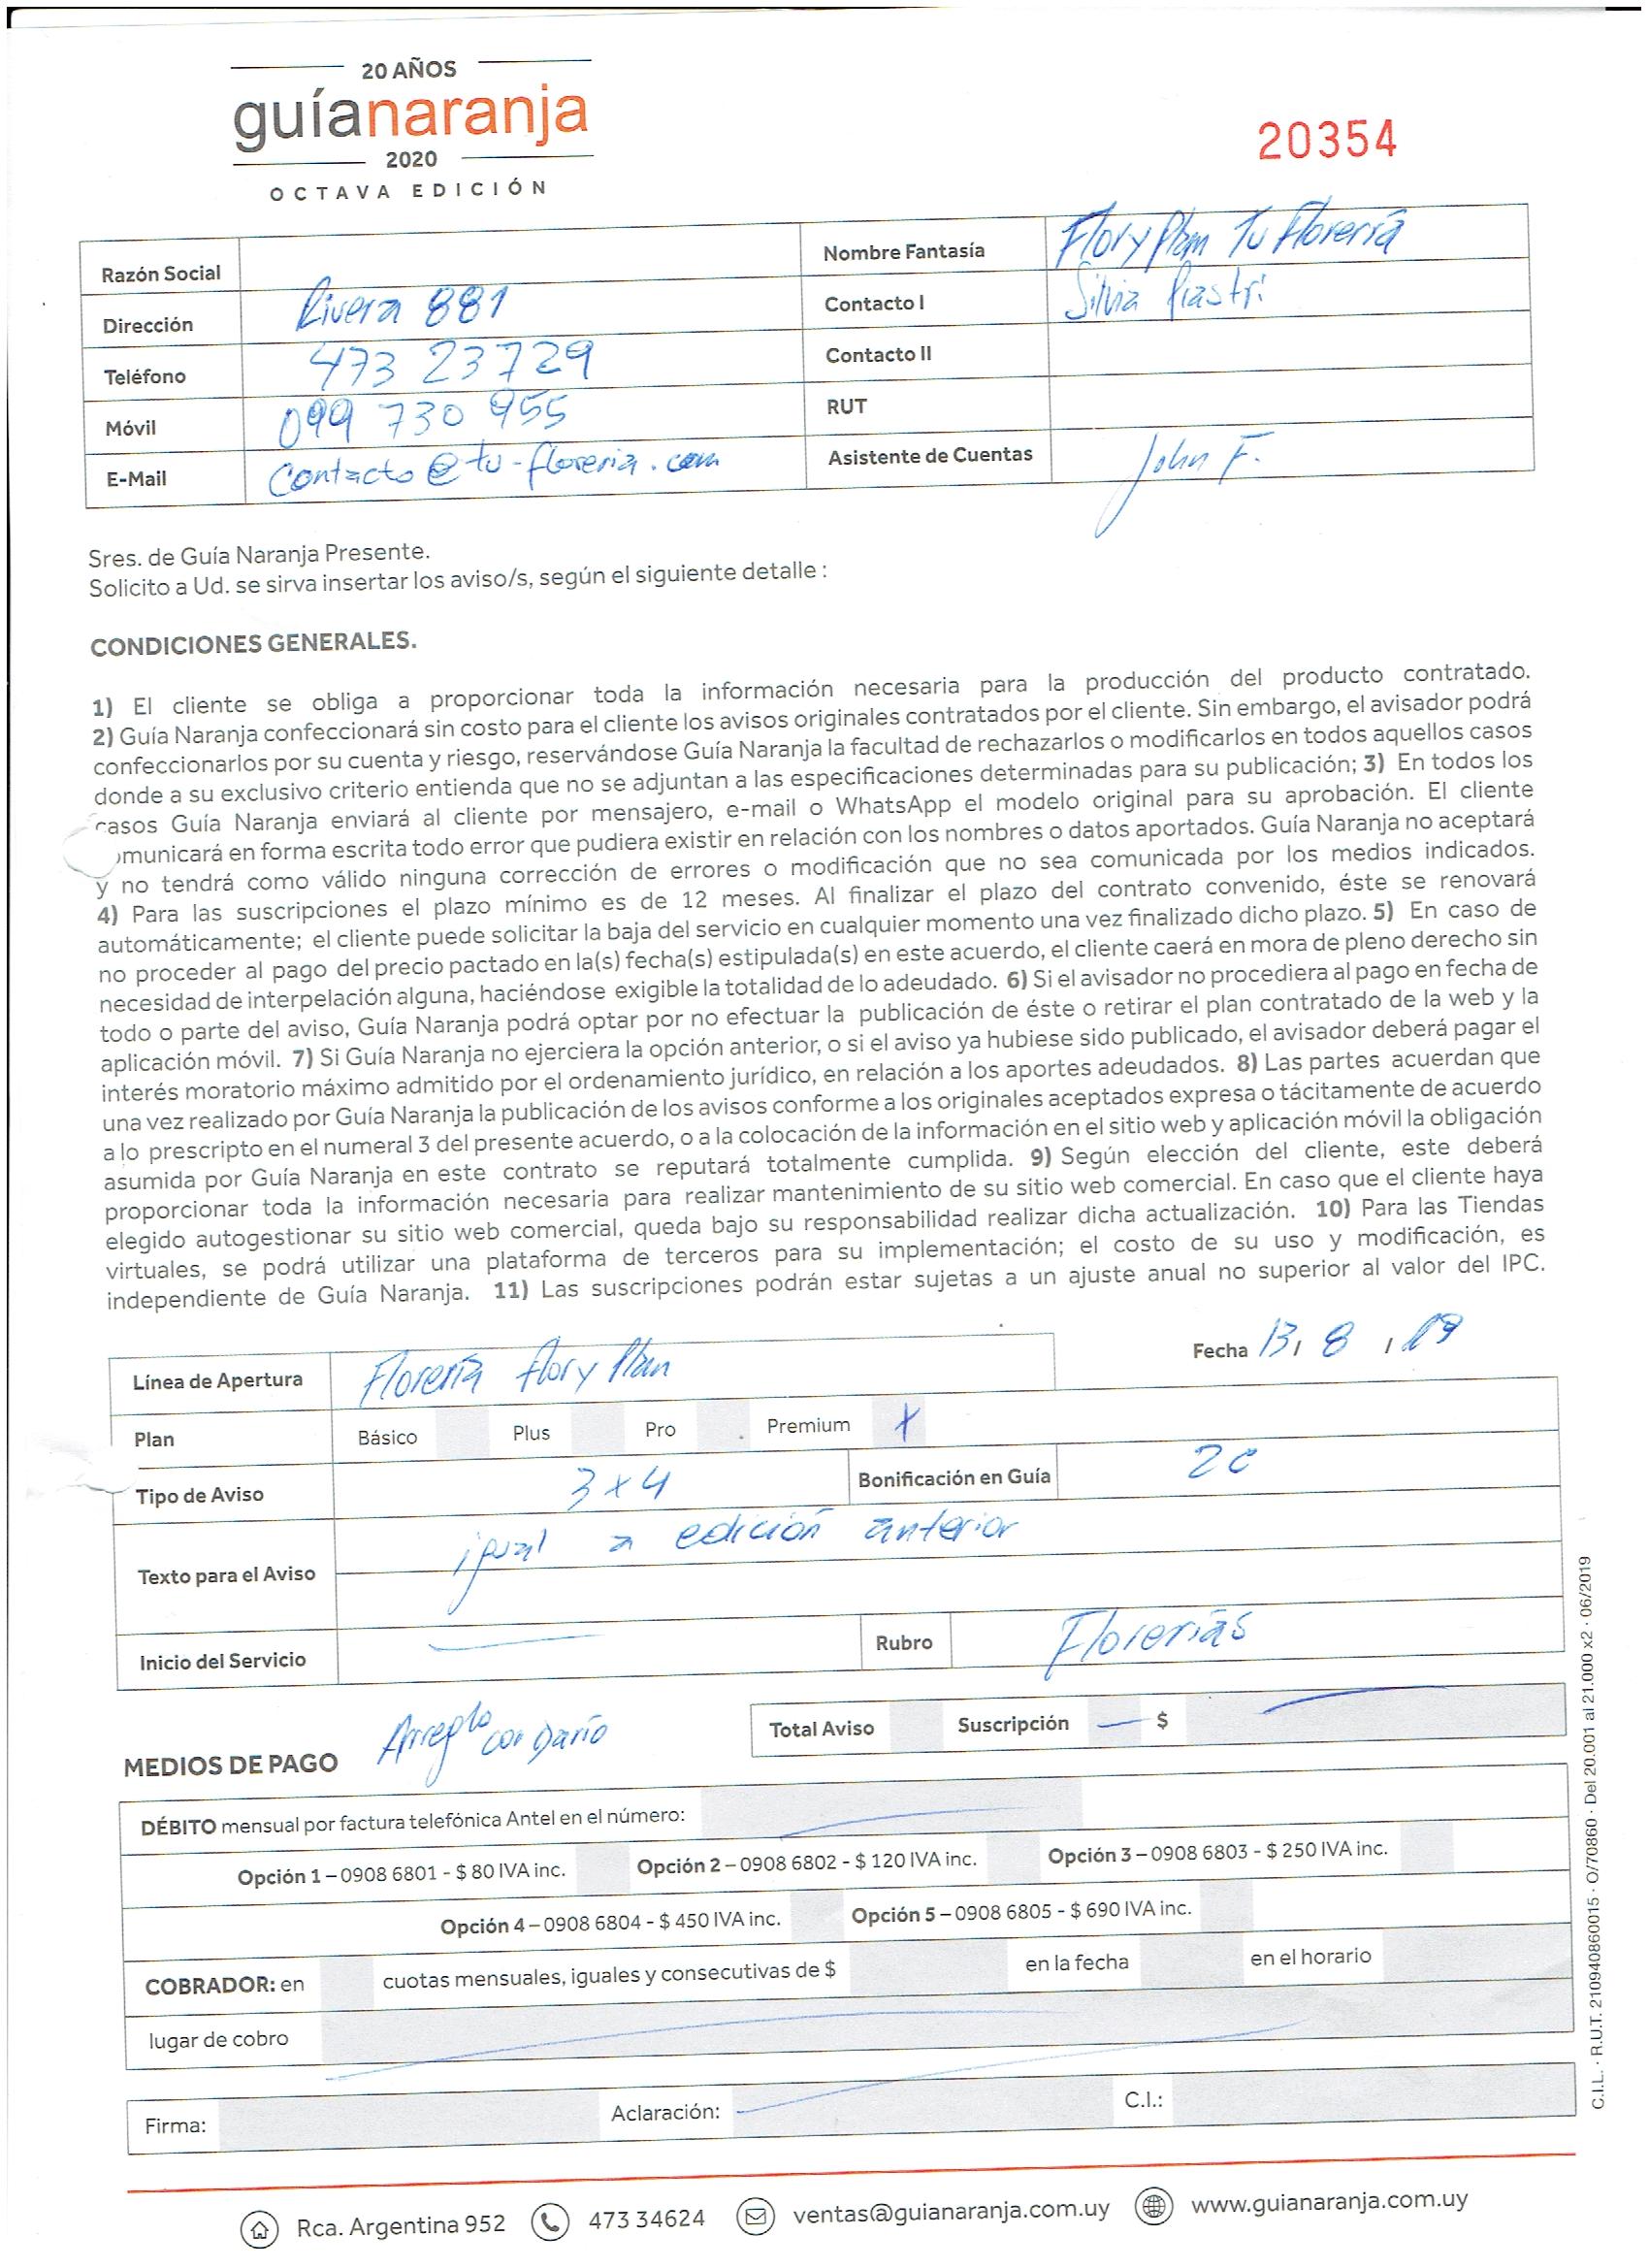 20 AÑOS
guíanaranja
2020
OCTAVA EDICIÓN
20354
Razón Social
Nombre Fantasía Flor y Plan Tu Florería
Dirección Rivera 881
Contacto I Silvia Piastri
Teléfono 473 23729
Contacto II
Móvil 099 730 955
RUT
E-Mail Contacto@tu-floreria.com
Asistente de Cuentas John F.
Sres. de Guía Naranja Presente.
Solicito a Ud. se sirva insertar los aviso/s, según el siguiente detalle :
CONDICIONES GENERALES.
1) El cliente se obliga a proporcionar toda la información necesaria para la producción del producto contratado.
2) Guía Naranja confeccionará sin costo para el cliente los avisos originales contratados por el cliente. Sin embargo, el avisador podrá
confeccionarlos por su cuenta y riesgo, reservándose Guía Naranja la facultad de rechazarlos o modificarlos en todos aquellos casos
donde a su exclusivo criterio entienda que no se adjuntan a las especificaciones determinadas para su publicación; 3) En todos los
casos Guía Naranja enviará al cliente por mensajero, e-mail o WhatsApp el modelo original para su aprobación. El cliente
omunicará en forma escrita todo error que pudiera existir en relación con los nombres o datos aportados. Guía Naranja no aceptará
y no tendrá como válido ninguna corrección de errores o modificación que no sea comunicada por los medios indicados.
4) Para las suscripciones el plazo mínimo es de 12 meses. Al finalizar el plazo del contrato convenido, éste se renovará
automáticamente; el cliente puede solicitar la baja del servicio en cualquier momento una vez finalizado dicho plazo. 5) En caso de
no proceder al pago del precio pactado en la(s) fecha(s) estipulada(s) en este acuerdo, el cliente caerá en mora de pleno derecho sin
necesidad de interpelación alguna, haciéndose exigible la totalidad de lo adeudado. 6) Si el avisador no procediera al pago en fecha de
todo o parte del aviso, Guía Naranja podrá optar por no efectuar la publicación de éste o retirar el plan contratado de la web y la
aplicación móvil. 7) Si Guía Naranja no ejerciera la opción anterior, o si el aviso ya hubiese sido publicado, el avisador deberá pagar el
interés moratorio máximo admitido por el ordenamiento jurídico, en relación a los aportes adeudados. 8) Las partes acuerdan que
una vez realizado por Guía Naranja la publicación de los avisos conforme a los originales aceptados expresa o tácitamente de acuerdo
a lo prescripto en el numeral 3 del presente acuerdo, o a la colocación de la información en el sitio web y aplicación móvil la obligación
asumida por Guía Naranja en este contrato se reputará totalmente cumplida. 9) Según elección del cliente, este deberá
proporcionar toda la información necesaria para realizar mantenimiento de su sitio web comercial. En caso que el cliente haya
elegido autogestionar su sitio web comercial, queda bajo su responsabilidad realizar dicha actualización. 10) Para las Tiendas
virtuales, se podrá utilizar una plataforma de terceros para su implementación; el costo de su uso y modificación, es
independiente de Guía Naranja. 11) Las suscripciones podrán estar sujetas a un ajuste anual no superior al valor del IPC.
Fecha 13 / 8 / 19
Línea de Apertura Florería Flor y Plan
Plan Básico Plus Pro Premium X
Tipo de Aviso 3 x 4 Bonificación en Guía 2c
Texto para el Aviso igual a edición anterior
Inicio del Servicio — Rubro Florerías
Total Aviso Suscripción — $ —
MEDIOS DE PAGO Arreglo con Darío
DÉBITO mensual por factura telefónica Antel en el número:
Opción 1 – 0908 6801 - $ 80 IVA inc. Opción 2 – 0908 6802 - $ 120 IVA inc. Opción 3 – 0908 6803 - $ 250 IVA inc.
Opción 4 – 0908 6804 - $ 450 IVA inc. Opción 5 – 0908 6805 - $ 690 IVA inc.
COBRADOR: en cuotas mensuales, iguales y consecutivas de $ en la fecha en el horario
lugar de cobro
Firma: Aclaración: C.I.:
C.I.L. · R.U.T. 210940860015 · O/70860 · Del 20.001 al 21.000 x2 · 06/2019
Rca. Argentina 952 473 34624 ventas@guianaranja.com.uy www.guianaranja.com.uy